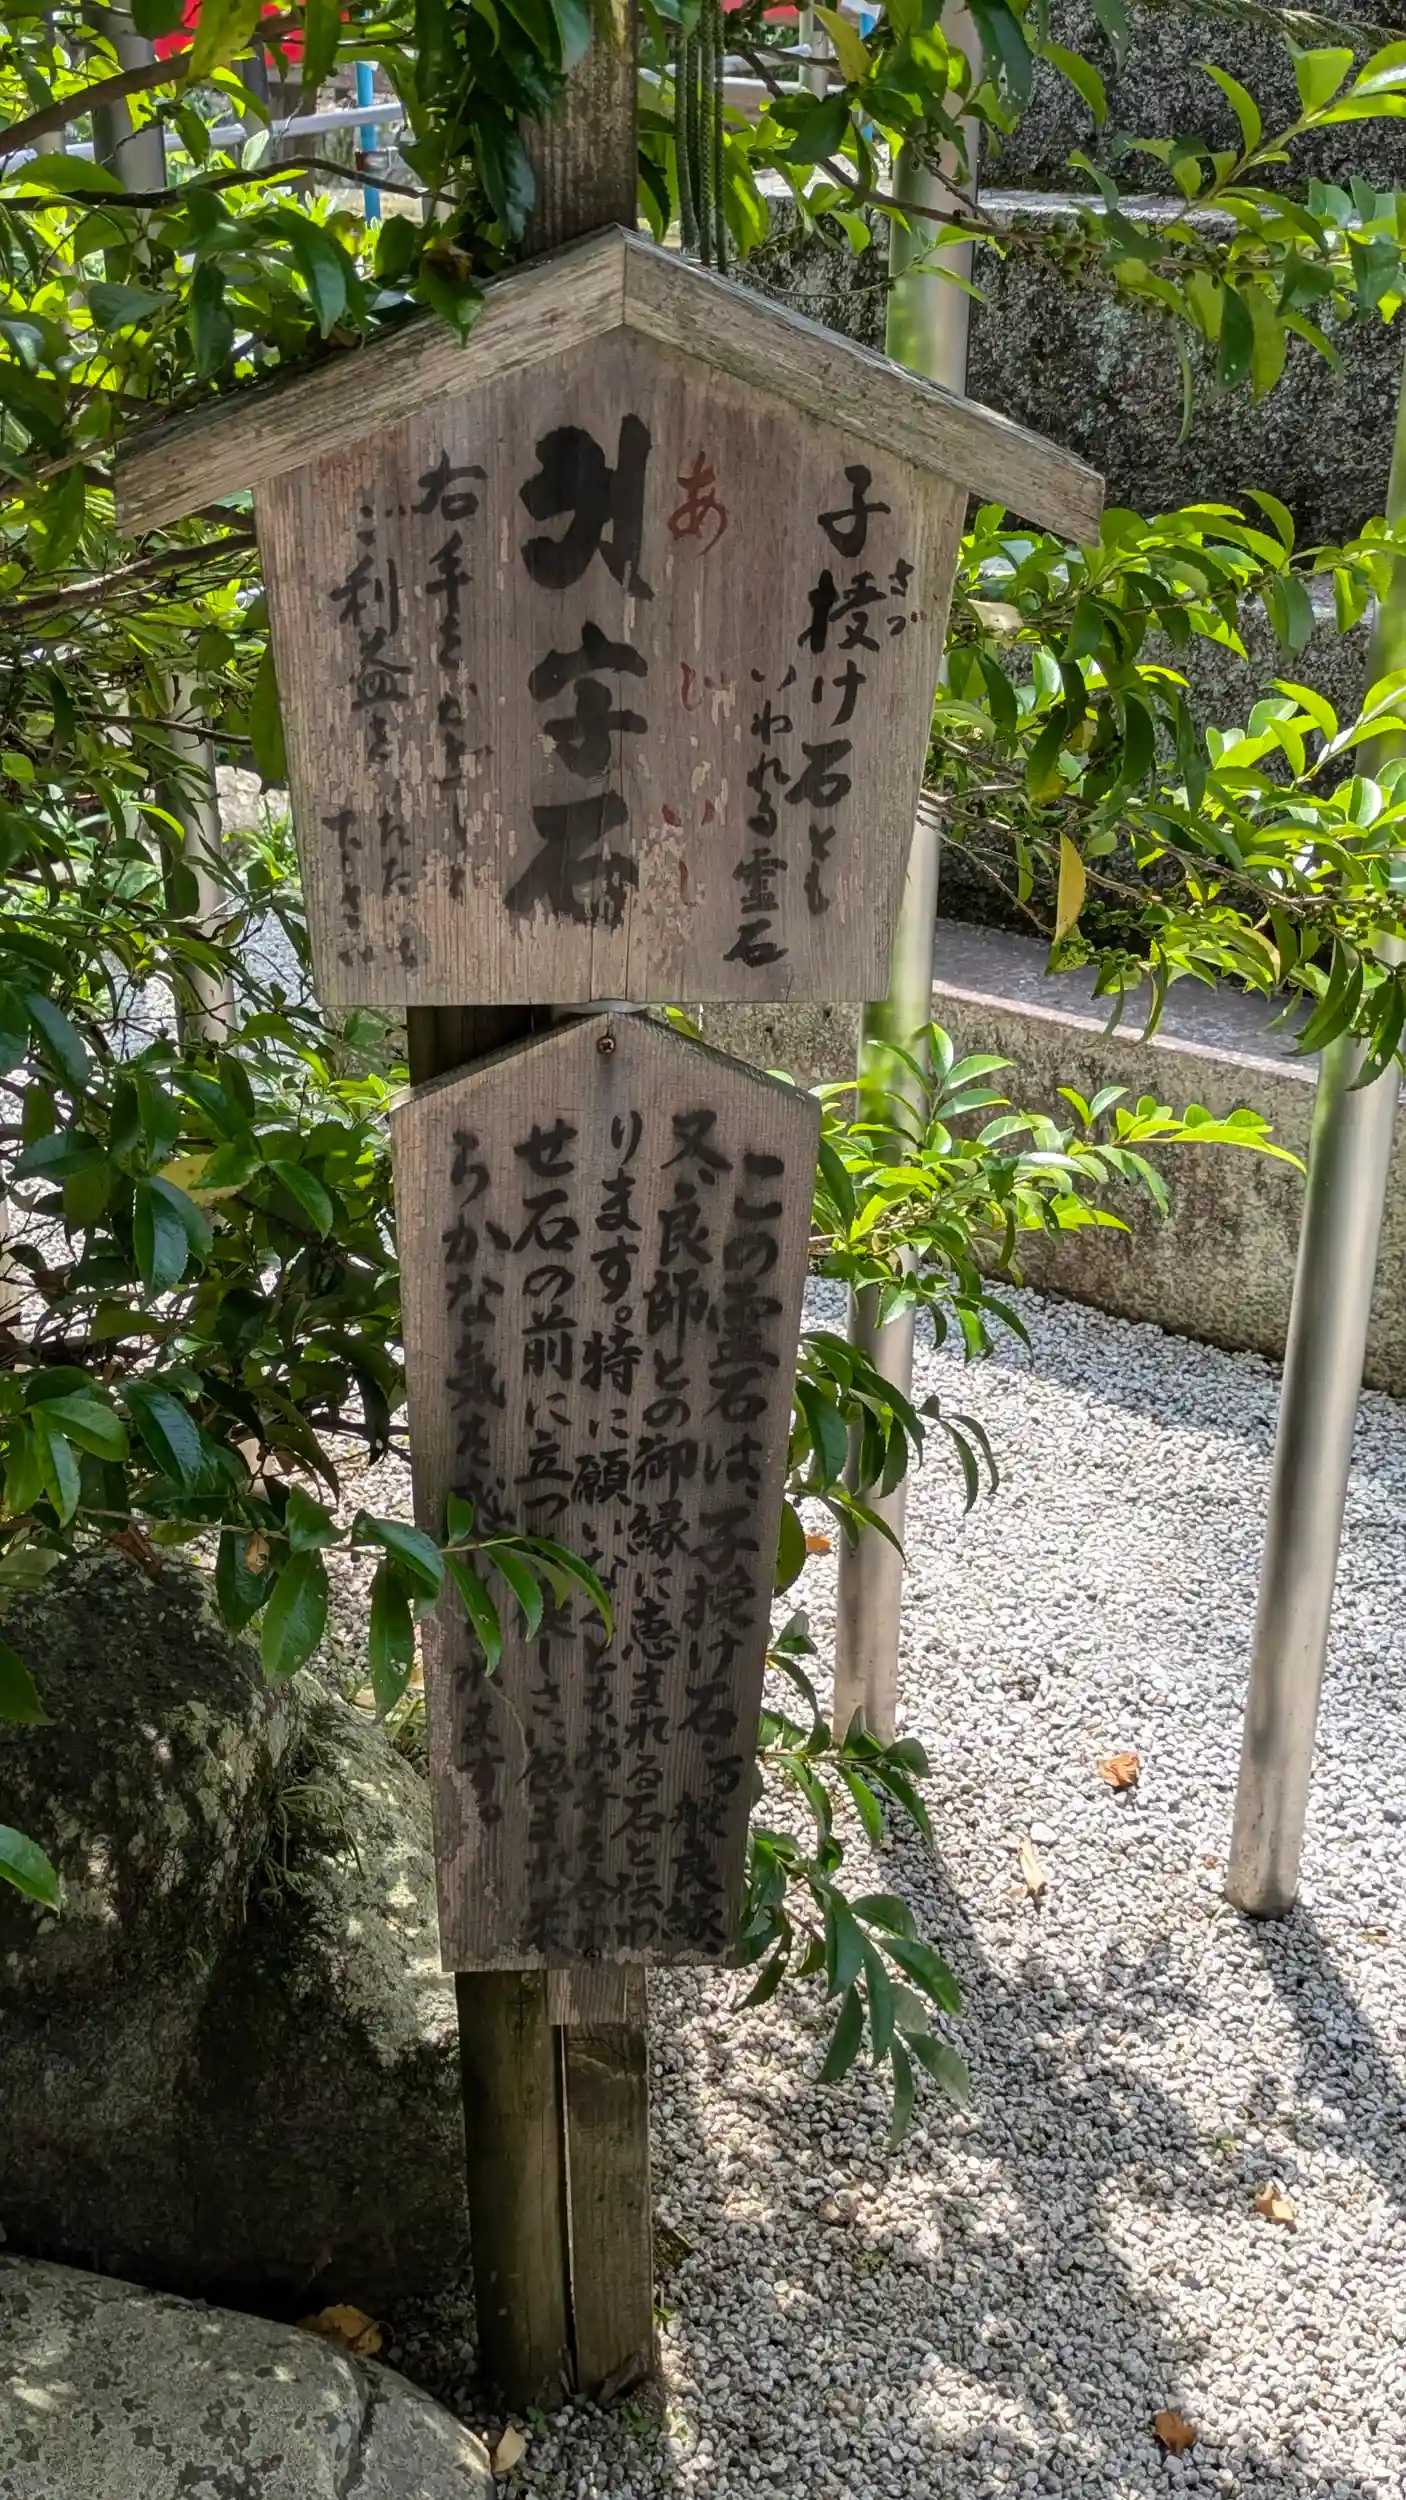 子授け石とも
さづ
いわれる霊石
あじいし
阿字石
右手をかざして
ご利益をいただ
下さい
この霊石は、子授け石・万般良縁、
又、良師との御縁に恵まれる石と伝わ
ります。特に願いなくとも、お手を合わ
せ石の前に立つと優しさに包まれ柔
らかな気を感じられます。